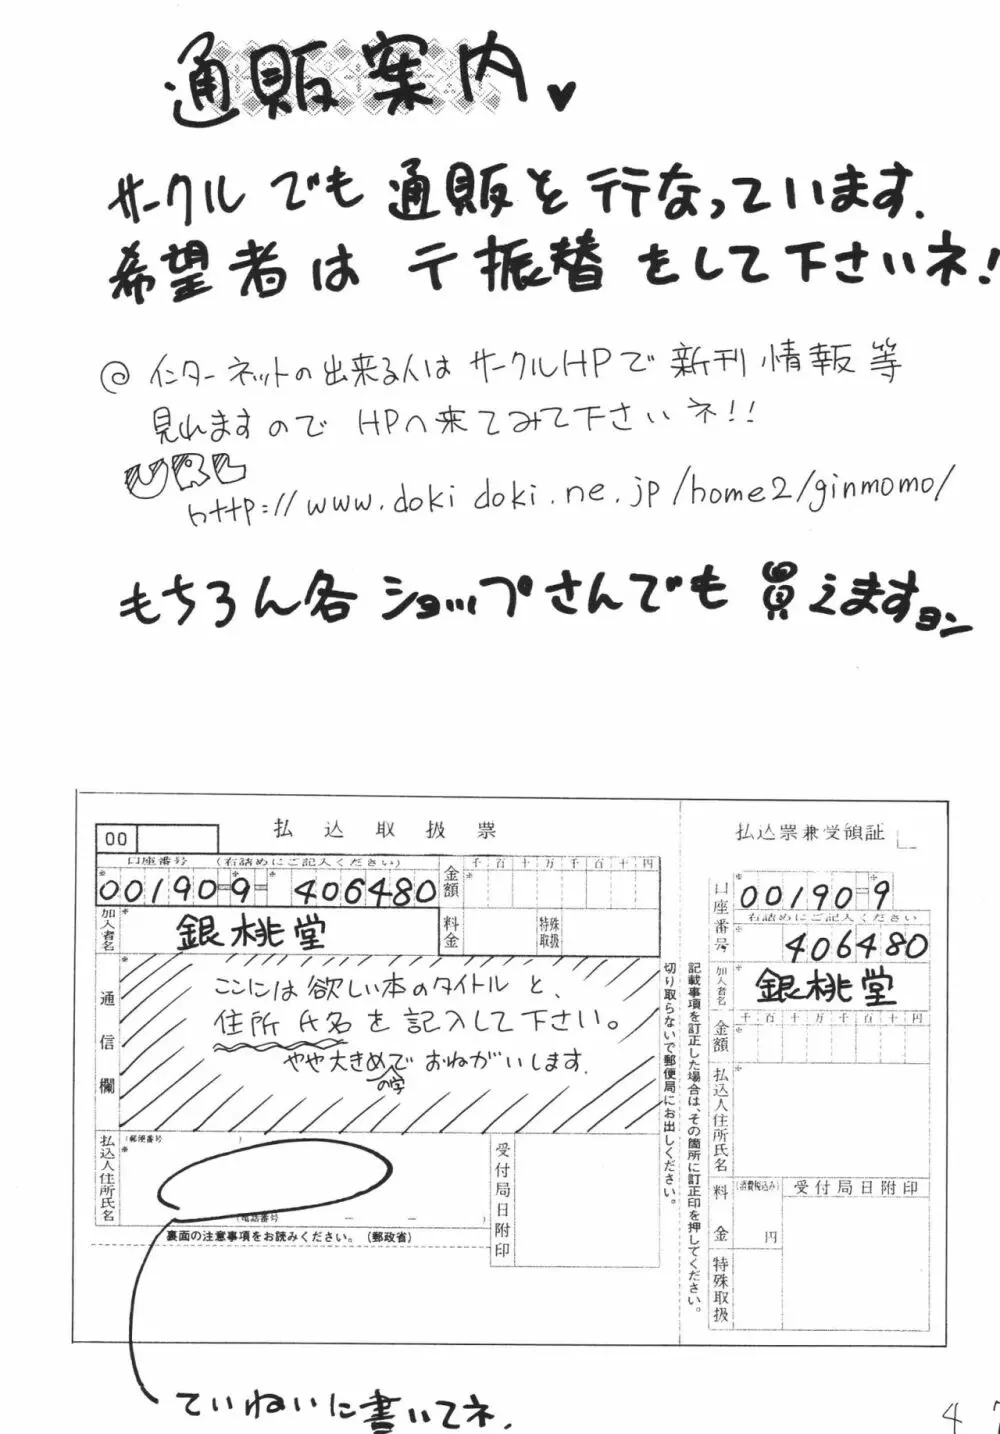 通販案内♥
サークルでも通販を行なっています.
希望者は〒振替をして下さいネ!
@インターネットの出来る人はサークルHPで新刊情報等
見れますのでHPへ来てみて下さいネ!!
URL
http://www.dokidoki.ne.jp/home2/ginmomo/
もちろん各ショップさんでも買えますョン
00
払込取扱票
口座番号 (右詰めにご記入ください)
00190-9-406480
金額
千百十万千百十円
加入者名
銀桃堂
料金
特殊取扱
通信欄
ここには欲しい本のタイトルと、
住所氏名を記入して下さい。
やや大きめの字でおねがいします.
払込人住所氏名
(郵便番号 )
(電話番号 - - )
受付局日附印
裏面の注意事項をお読みください。(郵政省)
切り取らないで郵便局にお出しください。
記載事項を訂正した場合は、その箇所に訂正印を押してください。
払込票兼受領証
口座番号
00190-9
右詰めにご記入ください
406480
加入者名
銀桃堂
金額
千百十万千百十円
払込人住所氏名
料金
(消費税込み)
円
受付局日附印
特殊取扱
ていねいに書いてネ.
47